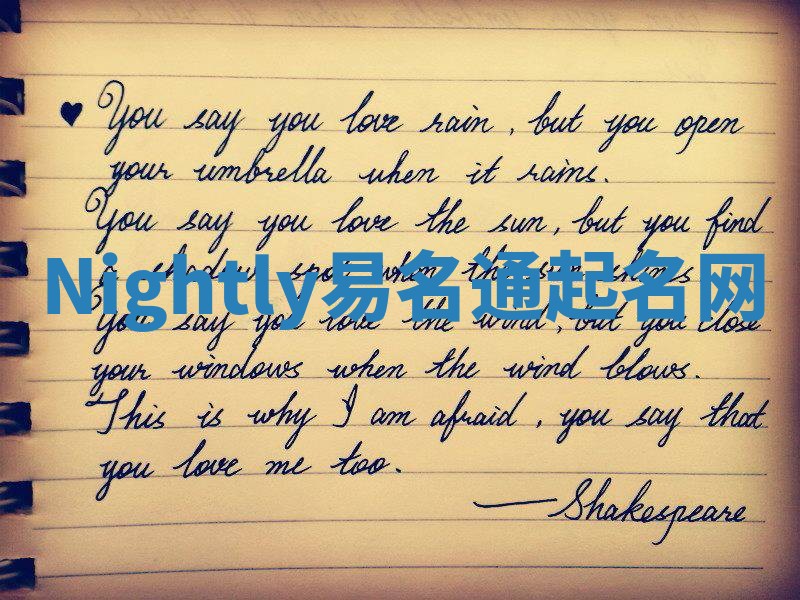 ♥ You say you love rain, but you open
your umbrella when it rains.
You say you love the sun, but you find
a shadow spot when the sun shines
Nightly易名通起名网
You say you love the wind, but you close
your windows when the wind blows.
This is why I am afraid, you say that
you love me too.
—Shakespeare